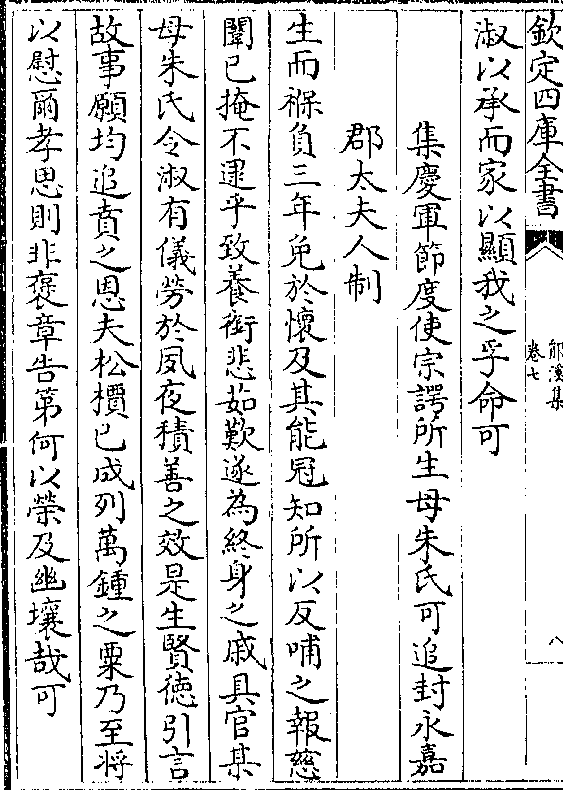 欽定四庫全書
鄖溪集
卷七
八
淑以承而家以顯我之孚命可
集慶軍節度使宗諤所生母朱氏可追封永嘉
郡太夫人制
生而褓負三年免於懷及其能冠知所以反哺之報慈
闈已掩不逮乎致養銜悲茹歎遂為終身之戚具官某
母朱氏令淑有儀勞於夙夜積善之效是生賢徳引言
故事願均追賁之恩夫松檟已成列萬鍾之粟乃至將
以慰爾孝思則非褒章告第何以榮及幽壤哉可